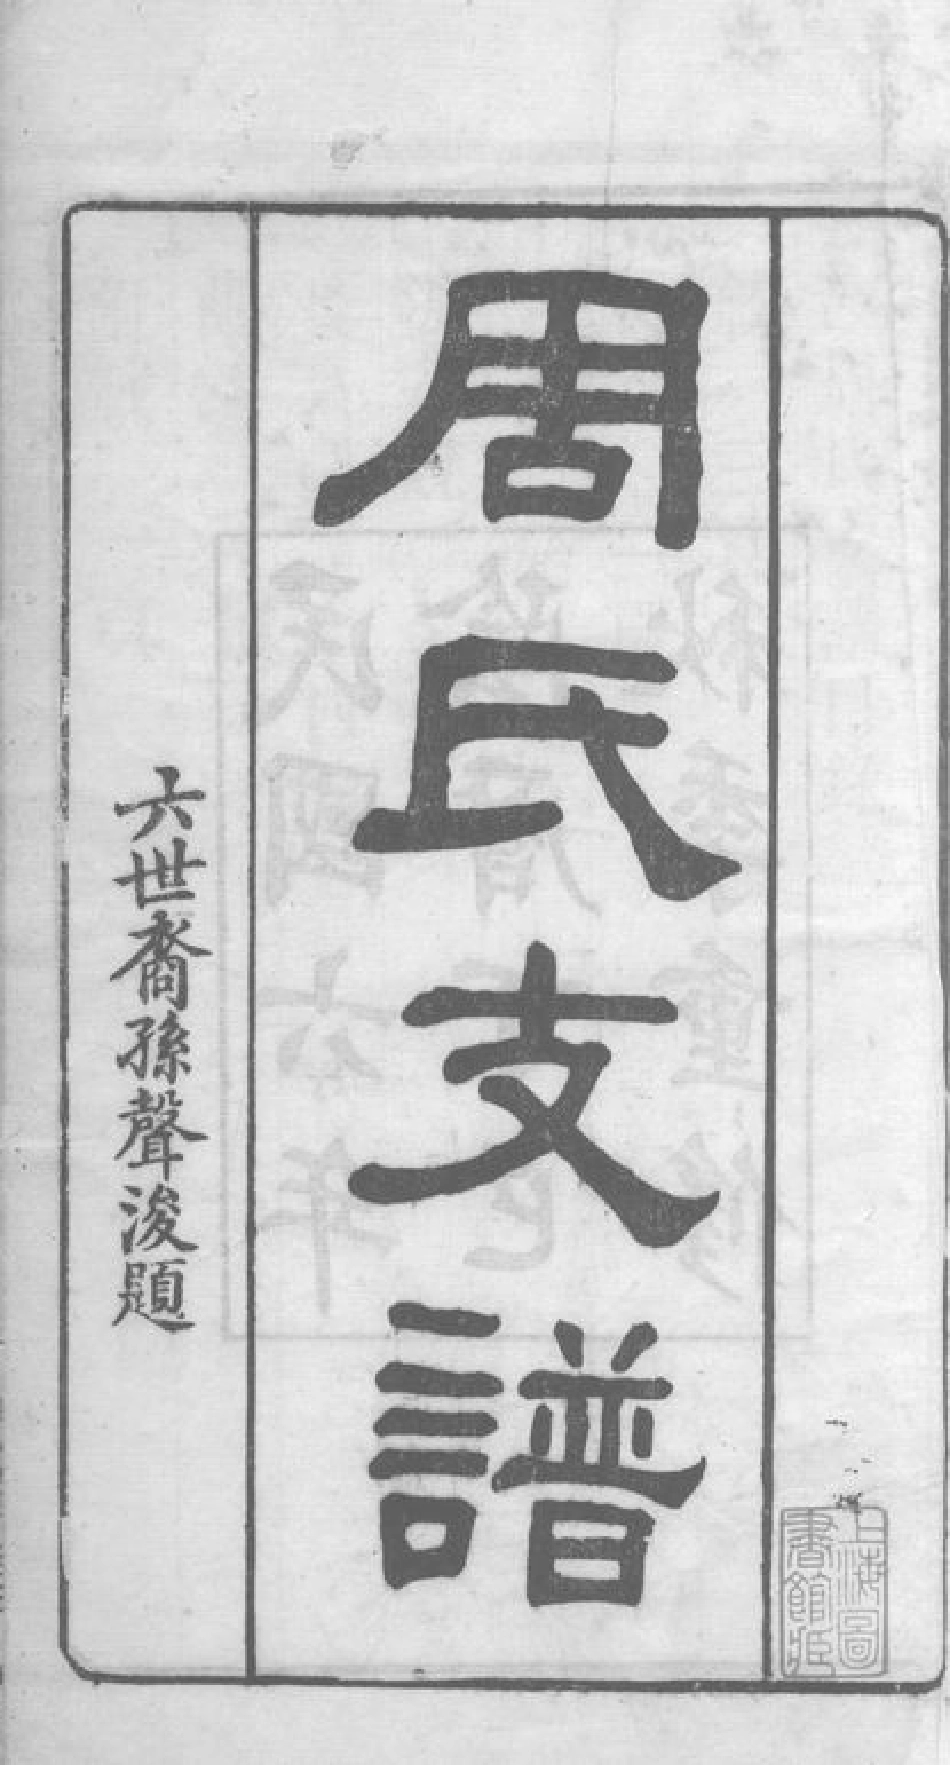 周氏支譜
六世裔孫聲浚題
上海圖
書館藏